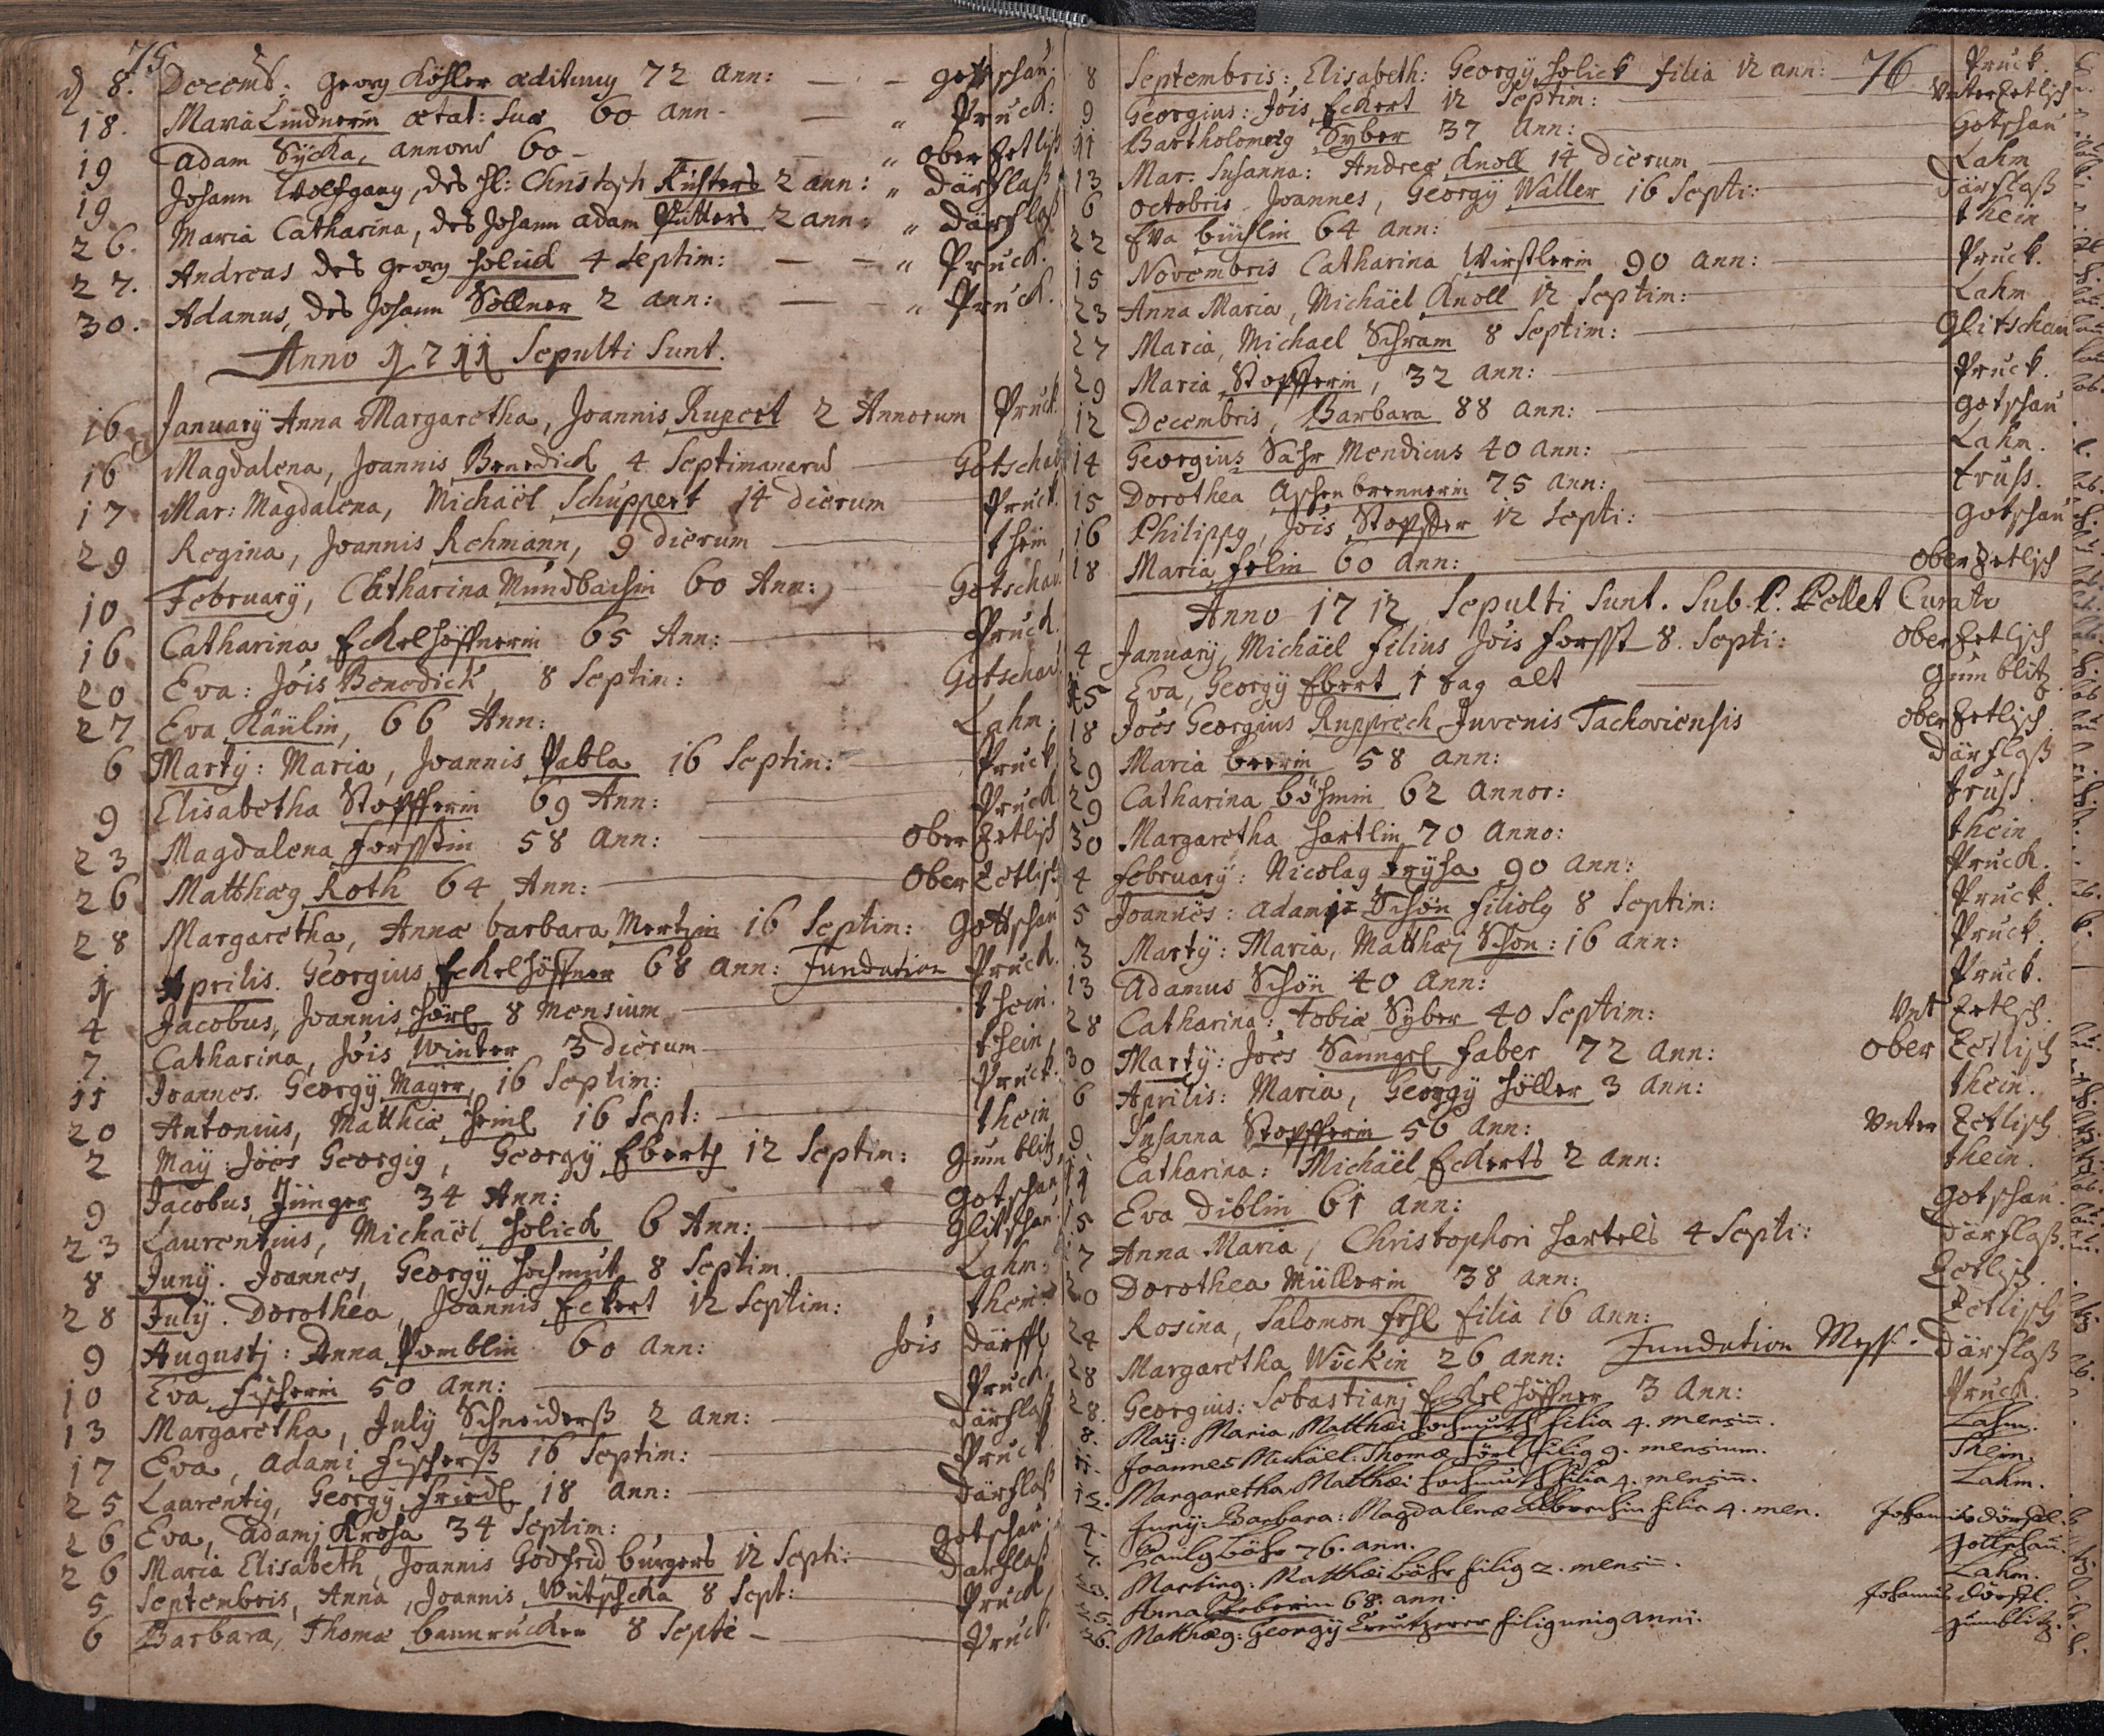 75
d 8. Decemb: Georg Köhler ædituus 72 Ann: — - gottschau:
18. Maria Lindnerin ætat: suæ 60 Ann - — „ Pruck:
19 Adam Sycka, annorū 60 - — „ Ober Zetlisch
19 Johann Wolfgang, des Hl: Christoph Richters 2 ann: „ Därflaß
26. Maria Catharina, des Johann adam Pütters 2 ann: „ Därflaß
27. Andreas des Georg Holud 4 Septim: — - „ Pruck.
30. Adamus, des Johann Söllner 2 ann: — - „ Pruck.
Anno 1711 Sepulti Sunt.
16 January Anna Margaretha, Joannis Rupert 2 Annorum Pruck
16 Magdalena, Joannis Benedick 4 Septimanarū Gotschau
17 Mar: Magdalena, Michaël Schuppert 14 dierum Pruck.
29 Regina, Joannis Rehmann, 9 dierum thein
10 February, Catharina Mundbachin 60 Ann: Gotschau
16 Catharina Eckelhöffnerin 65 Ann: Pruck.
20 Eva: Jois Benedick, 8 Septim: Gotschau
27 Eva Käulin, 66 Ann: Lahm:
6 Marty: Maria, Joannis Pabla 16 Septim: Pruck
9 Elisabetha Stopfferin 69 Ann: Pruck
23 Magdalena Forsstin 58 Ann: Ober Zetlisch
26 Matthæus Roth 64 Ann: Ober Zetlisch
28 Margaretha, Annæ barbara Mertzin 16 Septim: Gottschau
1 Aprilis. Georgius Eckelhöffner 68 ann: Fundation Pruck.
4 Jacobus, Joannis Hörl 8 Mensium thein.
7. Catharina, Jois Winter 3 dierum thein,
11 Joannes. Georgy Mayer, 16 Septim: Pruck.
20 Antonius, Matthiæ Heinl 16 Sept: thein
2 May: Joes Georgig, Georgy Eberth 12 Septim: Gumblitz.
9 Jacobus Jünger 34 Ann: Gotschau
23 Laurentius, Michaël Holick 6 Ann: Glitschau
8 Juny. Joannes, Georgy Hochmut 8 Septim. Lahm:
28 July. Dorothea, Joannis Eckert 12 Septim: thein
9 Augustj: Anna Pomblin 60 ann: Jois därffl
10 Eva Fischerin 50 ann: Pruck.
13 Margaretha, July Schneiderß 2 ann: Därflaß
17 Eva, Adami Fischerß 16 Septim: Pruck
25 Laurentig, Georgy Friedl 18 ann: Därflaß
26 Eva, Adamj Krosa 34 Septim: Gotschau.
26 Maria Elisabeth, Joannis Godfrid burgers 12 Septi: Därflaß
5 Septembris, Anna, Joannis Wutscheka 8 Sept: Pruck,
6 Barbara, Thomæ bannrucker 8 Septi - Pruck.
76
8 Septembris: Elisabeth: Georgy Holick filia 12 ann: Pruck.
9 Georgius: Jois Eckert 12 Septim: Unter Zetlisch
11 Bartholomeg Syber 37 Ann: Gotschau
13 Mar: Susanna: Andreæ Knoll 14 Dierum Lahm
6 Octobris Joannes, Georgy Waller 16 Septi: Därflaß
22 Eva büchlin 64 Ann: thein
15 Novembris Catharina Wirstlerin 90 Ann: Pruck.
23 Anna Maria, Michaël Knoll 12 Septim: Lahm
27 Maria, Michael Schram 8 Septim: Glitschau
29 Maria Stopfferin, 32 Ann: Pruck.
12 Decembris, Barbara 88 Ann: Gotschau
14 Georgius Sahr Mendicus 40 Ann: Lahm.
15 Dorothea Aschenbrennerin 75 Ann: truss.
16 Philippg, Jois Stopffer 12 Septi: Gotschau
18 Maria Felin 60 Ann: Ober Zetlisch
Anno 1712 Sepulti Sunt. Sub P. Pellet Curato
4 January, Michäel filius Jois Forsst 8. Septi: Ober Zetlisch
15 Eva, Georgy Ebert 1 tag alt Gumblitz
18 Joes Georgius Rupprech Juvenis Tachoviensis Ober Zetlisch
29 Maria beerin 58 ann: Därflaß
29 Catharina böhmin 62 Annor: truss.
30 Margaretha Hartlin 70 Anno: thein
4 February: Nicolag Frysa 90 Ann: Pruck.
5 Joannes: Adami Schön filiolg 8 Septim: Pruck.
3 Marty: Maria, Matthæj Schon: 16 ann: Pruck.
13 Adamus Schön 40 Ann: Pruck.
28 Catharina: tobiæ Syber 40 Septim: Unt Zetlsch.
30 Marty: Joes Saungrl faber 72 Ann: Ober Zetlisch
6 Aprilis: Maria, Georgy Höller 3 Ann: thein.
9. Susanna Stopfferin 56 Ann: Unter Zetlisch
11 Catharina: Michaël Eckerts 2 ann: thein.
15 Eva Diblin 61 Ann: Gotschau.
17 Anna Maria, Christophori Hartels 4 Septi: Därflaß.
20 Dorothea Müllerin 38 Ann: Zetlisch.
24 Rosina, Salomon Fehl filia 16 Ann: Zetlisch
28 Margaretha Wickin 26 Ann: Fundation Mess. Därflaß
28. Georgius: Sebastianj Eckelhöffner 3 Ann: Pruck.
8. May: Maria, Matthæi Hochmuth filia 4. mensiū. Lahm.
11. Joannes Michäel: Thomæ Hörl filig 9. mensium. Thein.
15. Margaretha, Matthæi Hochmuth filia 4. mensiū. Lahm.
4. Juny: Barbara: Magdalenæ Albrechin filia 4. men. Johannisdörfl.
Paulg Böhr 76. ann. Gottschau.
Marting: Matthæi Böhr filig 2. mensiū. Lahm.
Anna 68. ann: Johannis dörfl.
26. Matthæg: Georgy Creutzerer filig unig anni. gumblitz.